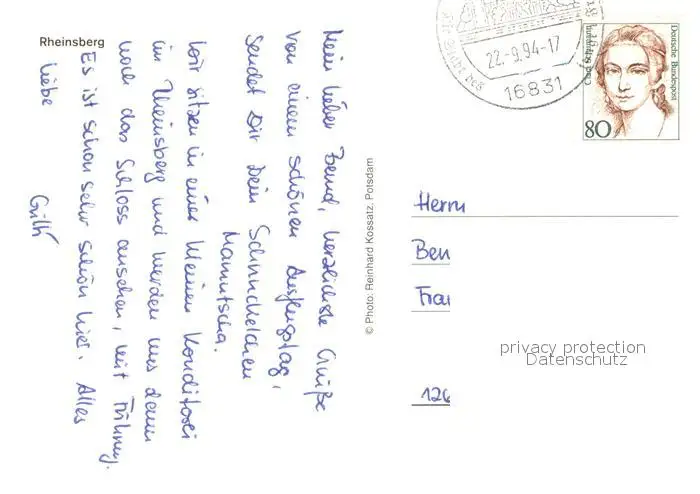 Rheinsberg
Mein lieber Bernd, herzlichste Grüße
von einem schönen Ausflugstag,
sendet Dir Dein Schnuckelchen
Mamutscha.
Wir sitzen in einer kleinen Konditorei
in Rheinsberg und werden uns dann
noch das Schloss ansehen, mit Führung.
Es ist schon sehr schön hier. Alles
Liebe
© Photo: Reinhard Kossatz, Potsdam
22.-9.94-17
16831
Deutsche Bundespost
80
Herrn
Ben
Frau
126
privacy protection
Datenschutz